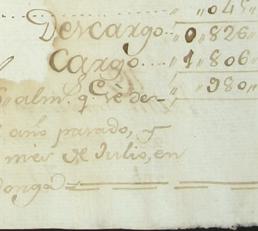 „ „ 045
Descargo.. „ 0 „ 826 „
Cargo.... „ 1 „ 806 „
„ alm. q. Se de- „ „ 980 „
año pasado, y
mes de Julio, en
donga